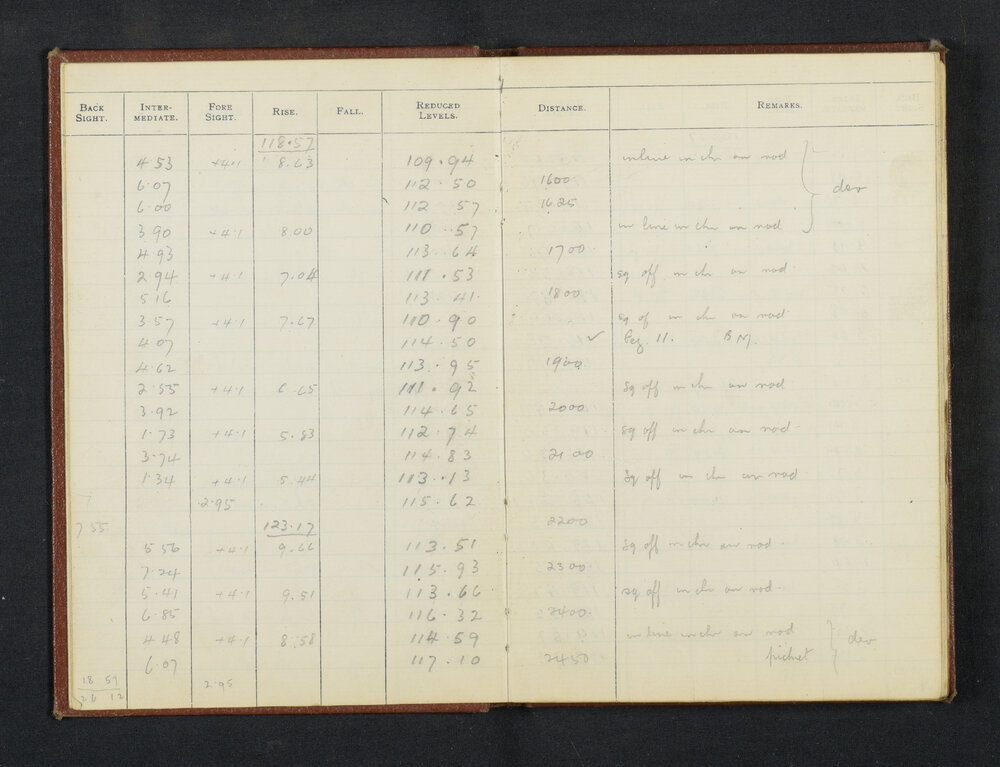 BACK SIGHT. INTER-MEDIATE. FORE SIGHT. RISE. FALL. REDUCED LEVELS. DISTANCE. REMARKS.
118.57
4.53 +4.1 8.63 109.94 in line in chr on rod
6.07 112.50 1600 dev
6.00 112.57 1625
3.90 +4.1 8.00 110.57 in line in chr on rod
4.93 113.64 1700
2.94 +4.1 7.04 111.53 sq off in chr on rod
5.16 113.41 1800
3.57 +4.1 7.67 110.90 sq of in chr on rod
4.07 114.50 ✓ Peg. 11. B M.
4.62 113.95 1900
2.55 +4.1 6.65 111.92 Sq off in chr on rod
3.92 114.65 2000
1.73 +4.1 5.83 112.74 sq off in chr on rod
3.74 114.83 2100
1.34 +4.1 5.44 113.13 Sq off in chr on rod
2.95 115.62
7.55 123.17 2200
5.56 +4.1 9.66 113.51 Sq off in chr on rod
7.24 115.93 2300
5.41 +4.1 9.51 113.66 sq off in chr on rod
6.85 116.32 2400
4.48 +4.1 8.58 114.59 in line in chr on rod dev
6.07 117.10 2450
18 57 2.95
26 12